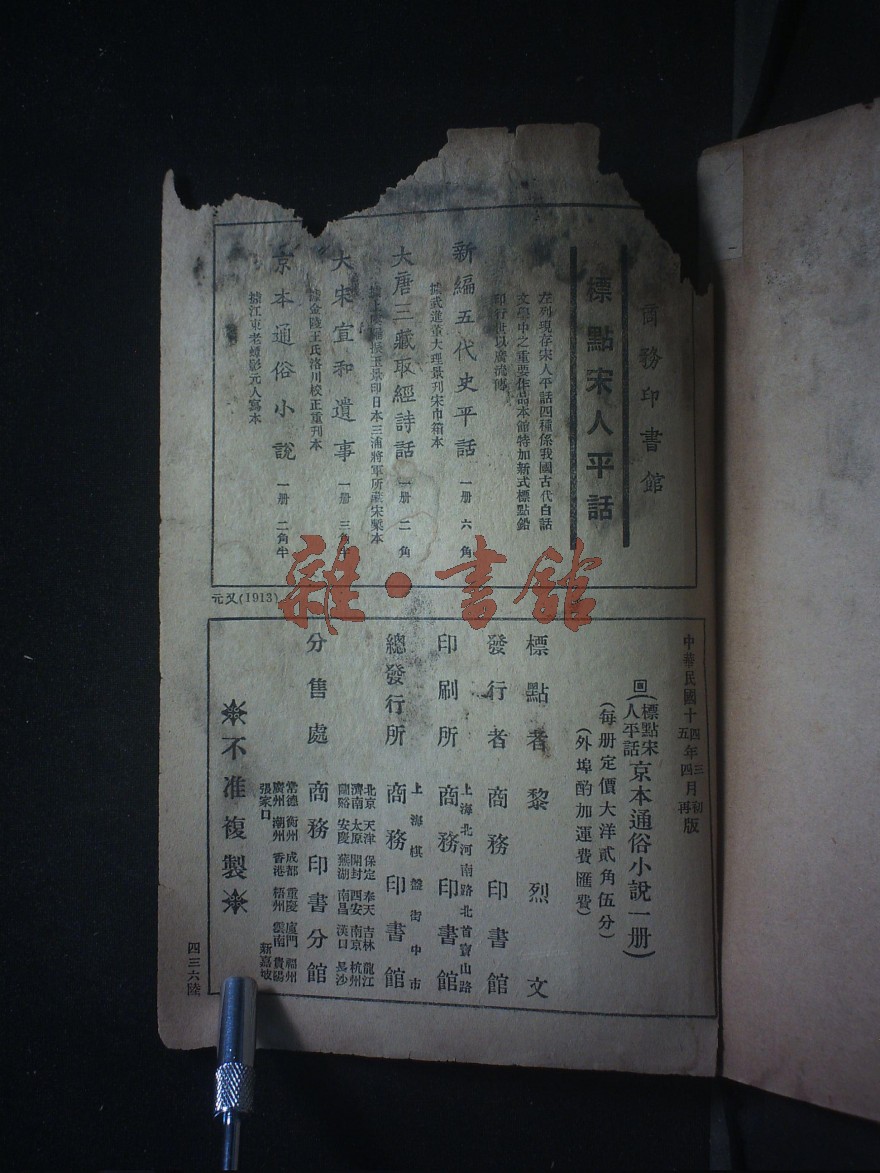 商務印書館
標點宋人平話
左列現存宋人平話四種係我國古代白話
文學中之重要作品本館特加新式標點鉛
印行世以廣流傳
新編五代史平話 一册 六角
據武進董大理景刊宋巾箱本
大唐三藏取經詩話 一册 二角
景印日本三浦將軍所藏宋槧本
大宋宣和遺事 一册 三角半
據金陵王氏洛川校正重刊本
京本通俗小說 一册 二角半
據江東老蟫影元人寫本
元又(1913)
雜·書館
中華民國十四年三月初版
五年四月再版
回(標點宋人平話京本通俗小說一册)
(每册定價大洋貳角伍分)
(外埠酌加運費匯費)
標點者 黎烈文
發行者 商務印書館
印刷所 商務印書館
上海北河南路北首寶山路
總發行所 商務印書館
上海棋盤街中市
分售處 商務印書分館
北京 天津 保定 奉天 吉林 龍江
濟南 太原 開封 西安 南京 杭州
蘭谿 安慶 蕪湖 南昌 漢口 長沙
常德 衡州 成都 重慶 廈門 福州
廣州 潮州 香港 梧州 雲南 貴陽
張家口 新嘉坡
不准複製
四三六陸